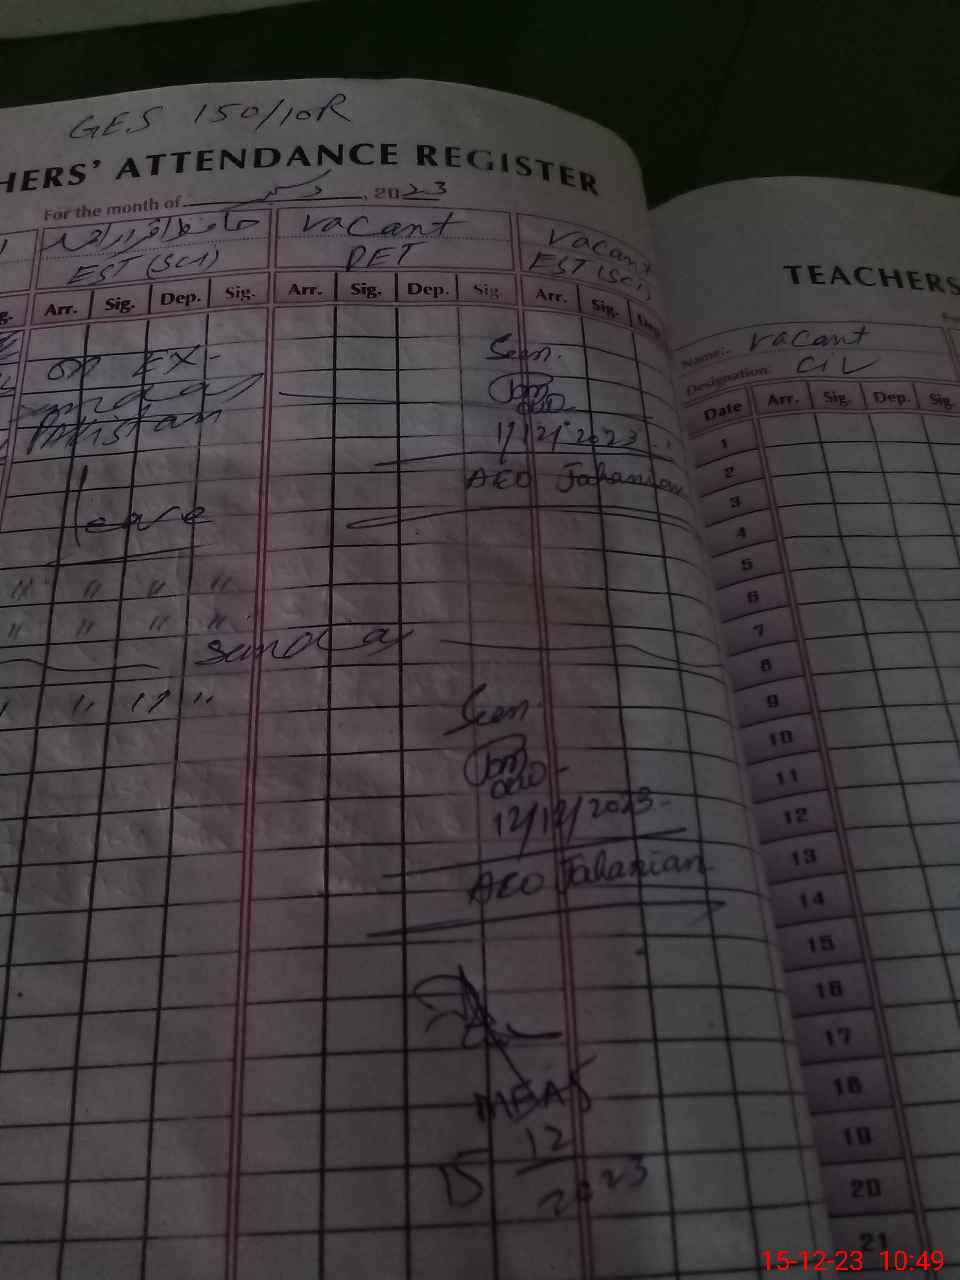 GES 150/10R
HERS' ATTENDANCE REGISTER
For the month of دسمبر, 2023
EST (SCI)
Vacant
PET
Vacant
EST (SCI)
g. Arr. Sig. Dep. Sig. Arr. Sig. Dep. Sig. Arr. Sig. Dep
on EX-
Pakistan
leave
" " " "
" " " "
Sunday
" " " "
Seen.
AEO Jahanian
Seen.
12/12/2023
AEO Jahanian
MEA
15 12 2023
TEACHERS
Name:- Vacant
Designation: C.IV
Date Arr. Sig. Dep. Sig.
1
2
3
4
5
6
7
8
9
10
11
12
13
14
15
16
17
18
19
20
21
15-12-23 10:49